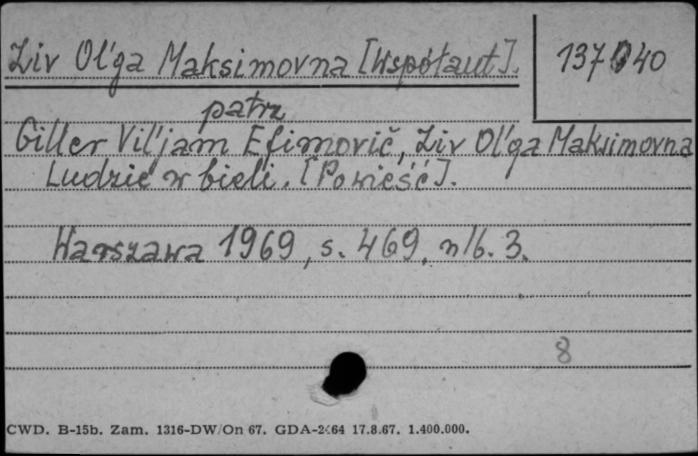 Ziv Ol'ga Maksimovna [Współaut].
137040
patrz
Giller Vil'jam Efimovič, Ziv Ol'ga Maksimovna
Ludzie w bieli. [Powieść].
Warszawa 1969, s. 469, nlb. 3.
8
CWD. B-15b. Zam. 1316-DW/On 67. GDA-2 64 17.8.67. 1.400.000.